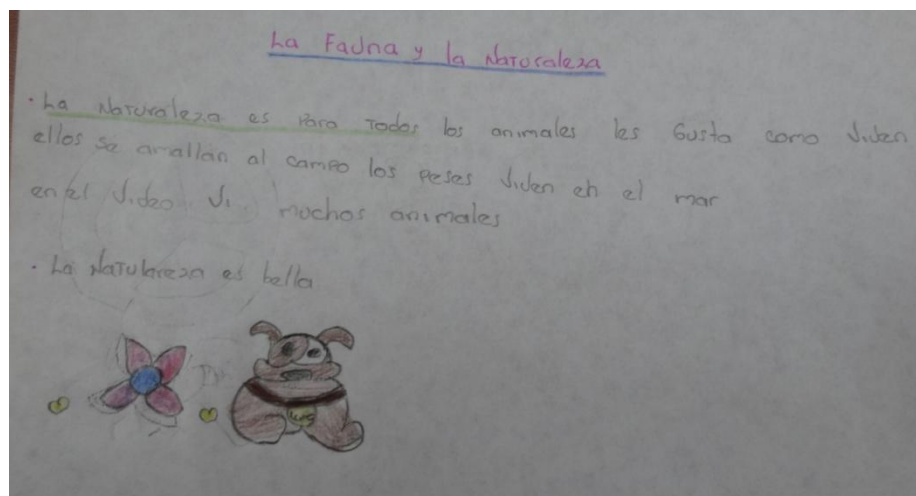 La Fauna y la Naturaleza
· La Naturaleza es para Todos los animales les Gusta como Viden
ellos se amallan al campo los peses Viden en el mar
en el Video Vi muchos animales
· La Natulareza es bella